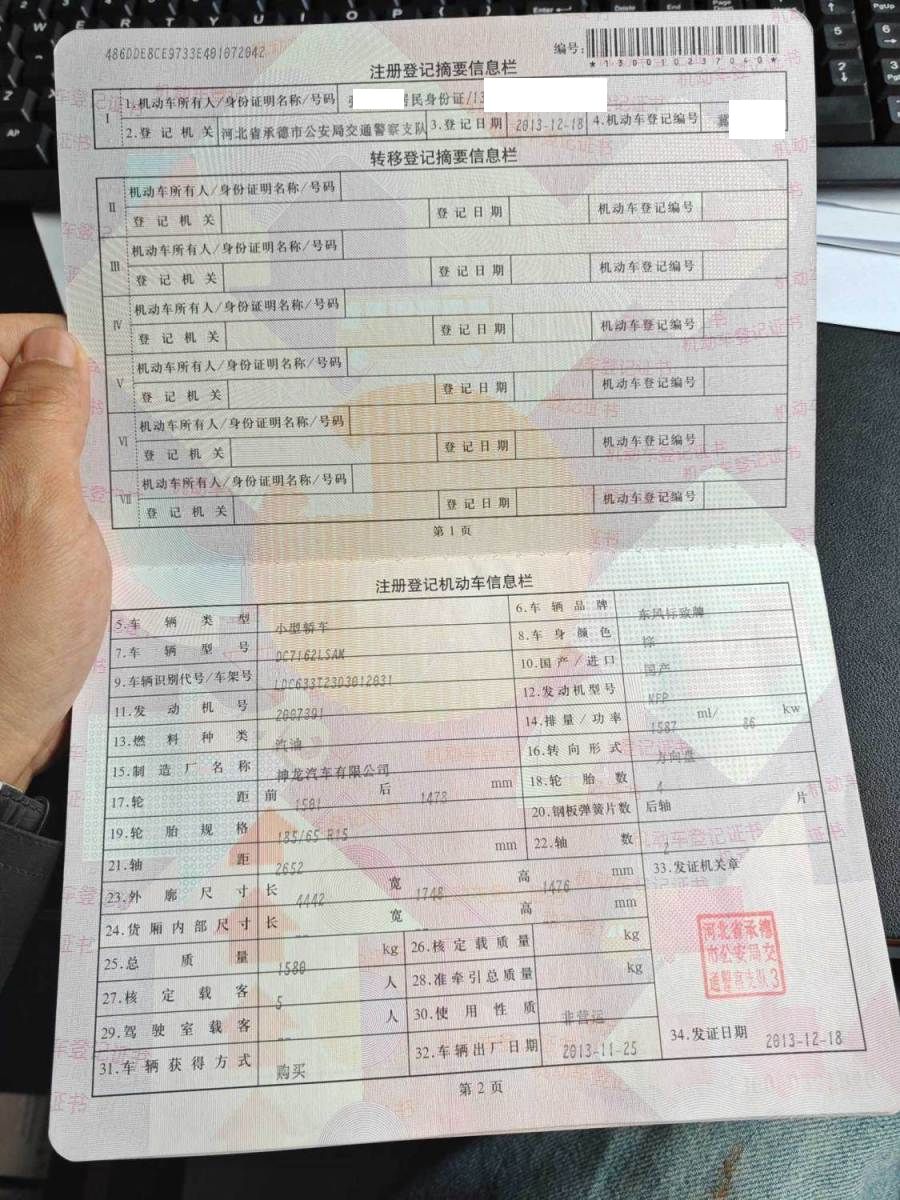 486DDE8CE9733E401072042
编号:
*130010237040*
注册登记摘要信息栏
Ⅰ 1.机动车所有人/身份证明名称/号码 居民身份证/13
2.登记机关 河北省承德市公安局交通警察支队 3.登记日期 2013-12-18 4.机动车登记编号 冀
转移登记摘要信息栏
Ⅱ 机动车所有人/身份证明名称/号码
登记机关 登记日期 机动车登记编号
Ⅲ 机动车所有人/身份证明名称/号码
登记机关 登记日期 机动车登记编号
Ⅳ 机动车所有人/身份证明名称/号码
登记机关 登记日期 机动车登记编号
Ⅴ 机动车所有人/身份证明名称/号码
登记机关 登记日期 机动车登记编号
Ⅵ 机动车所有人/身份证明名称/号码
登记机关 登记日期 机动车登记编号
Ⅶ 机动车所有人/身份证明名称/号码
登记机关 登记日期 机动车登记编号
第1页
注册登记机动车信息栏
5.车辆类型 小型轿车 6.车辆品牌 东风标致牌
7.车辆型号 DC7162LSAM 8.车身颜色 棕
9.车辆识别代号/车架号 LDC633T23D3012031 10.国产/进口 国产
11.发动机号 2007391 12.发动机型号 NFP
13.燃料种类 汽油 14.排量/功率 1587 ml/ 86 kw
15.制造厂名称 神龙汽车有限公司 16.转向形式 方向盘
17.轮距 前 1501 后 1478 mm 18.轮胎数 4
19.轮胎规格 185/65 R15 20.钢板弹簧片数 后轴 片
21.轴距 2652 mm 22.轴数 2
23.外廓尺寸 长 4442 宽 1748 高 1476 mm 33.发证机关章
24.货厢内部尺寸 长 宽 高 mm
25.总质量 1580 kg 26.核定载质量 kg
27.核定载客 5 人 28.准牵引总质量 kg
29.驾驶室载客 人 30.使用性质 非营运
31.车辆获得方式 购买 32.车辆出厂日期 2013-11-25 34.发证日期 2013-12-18
河北省承德
市公安局交
通警察支队3
第2页